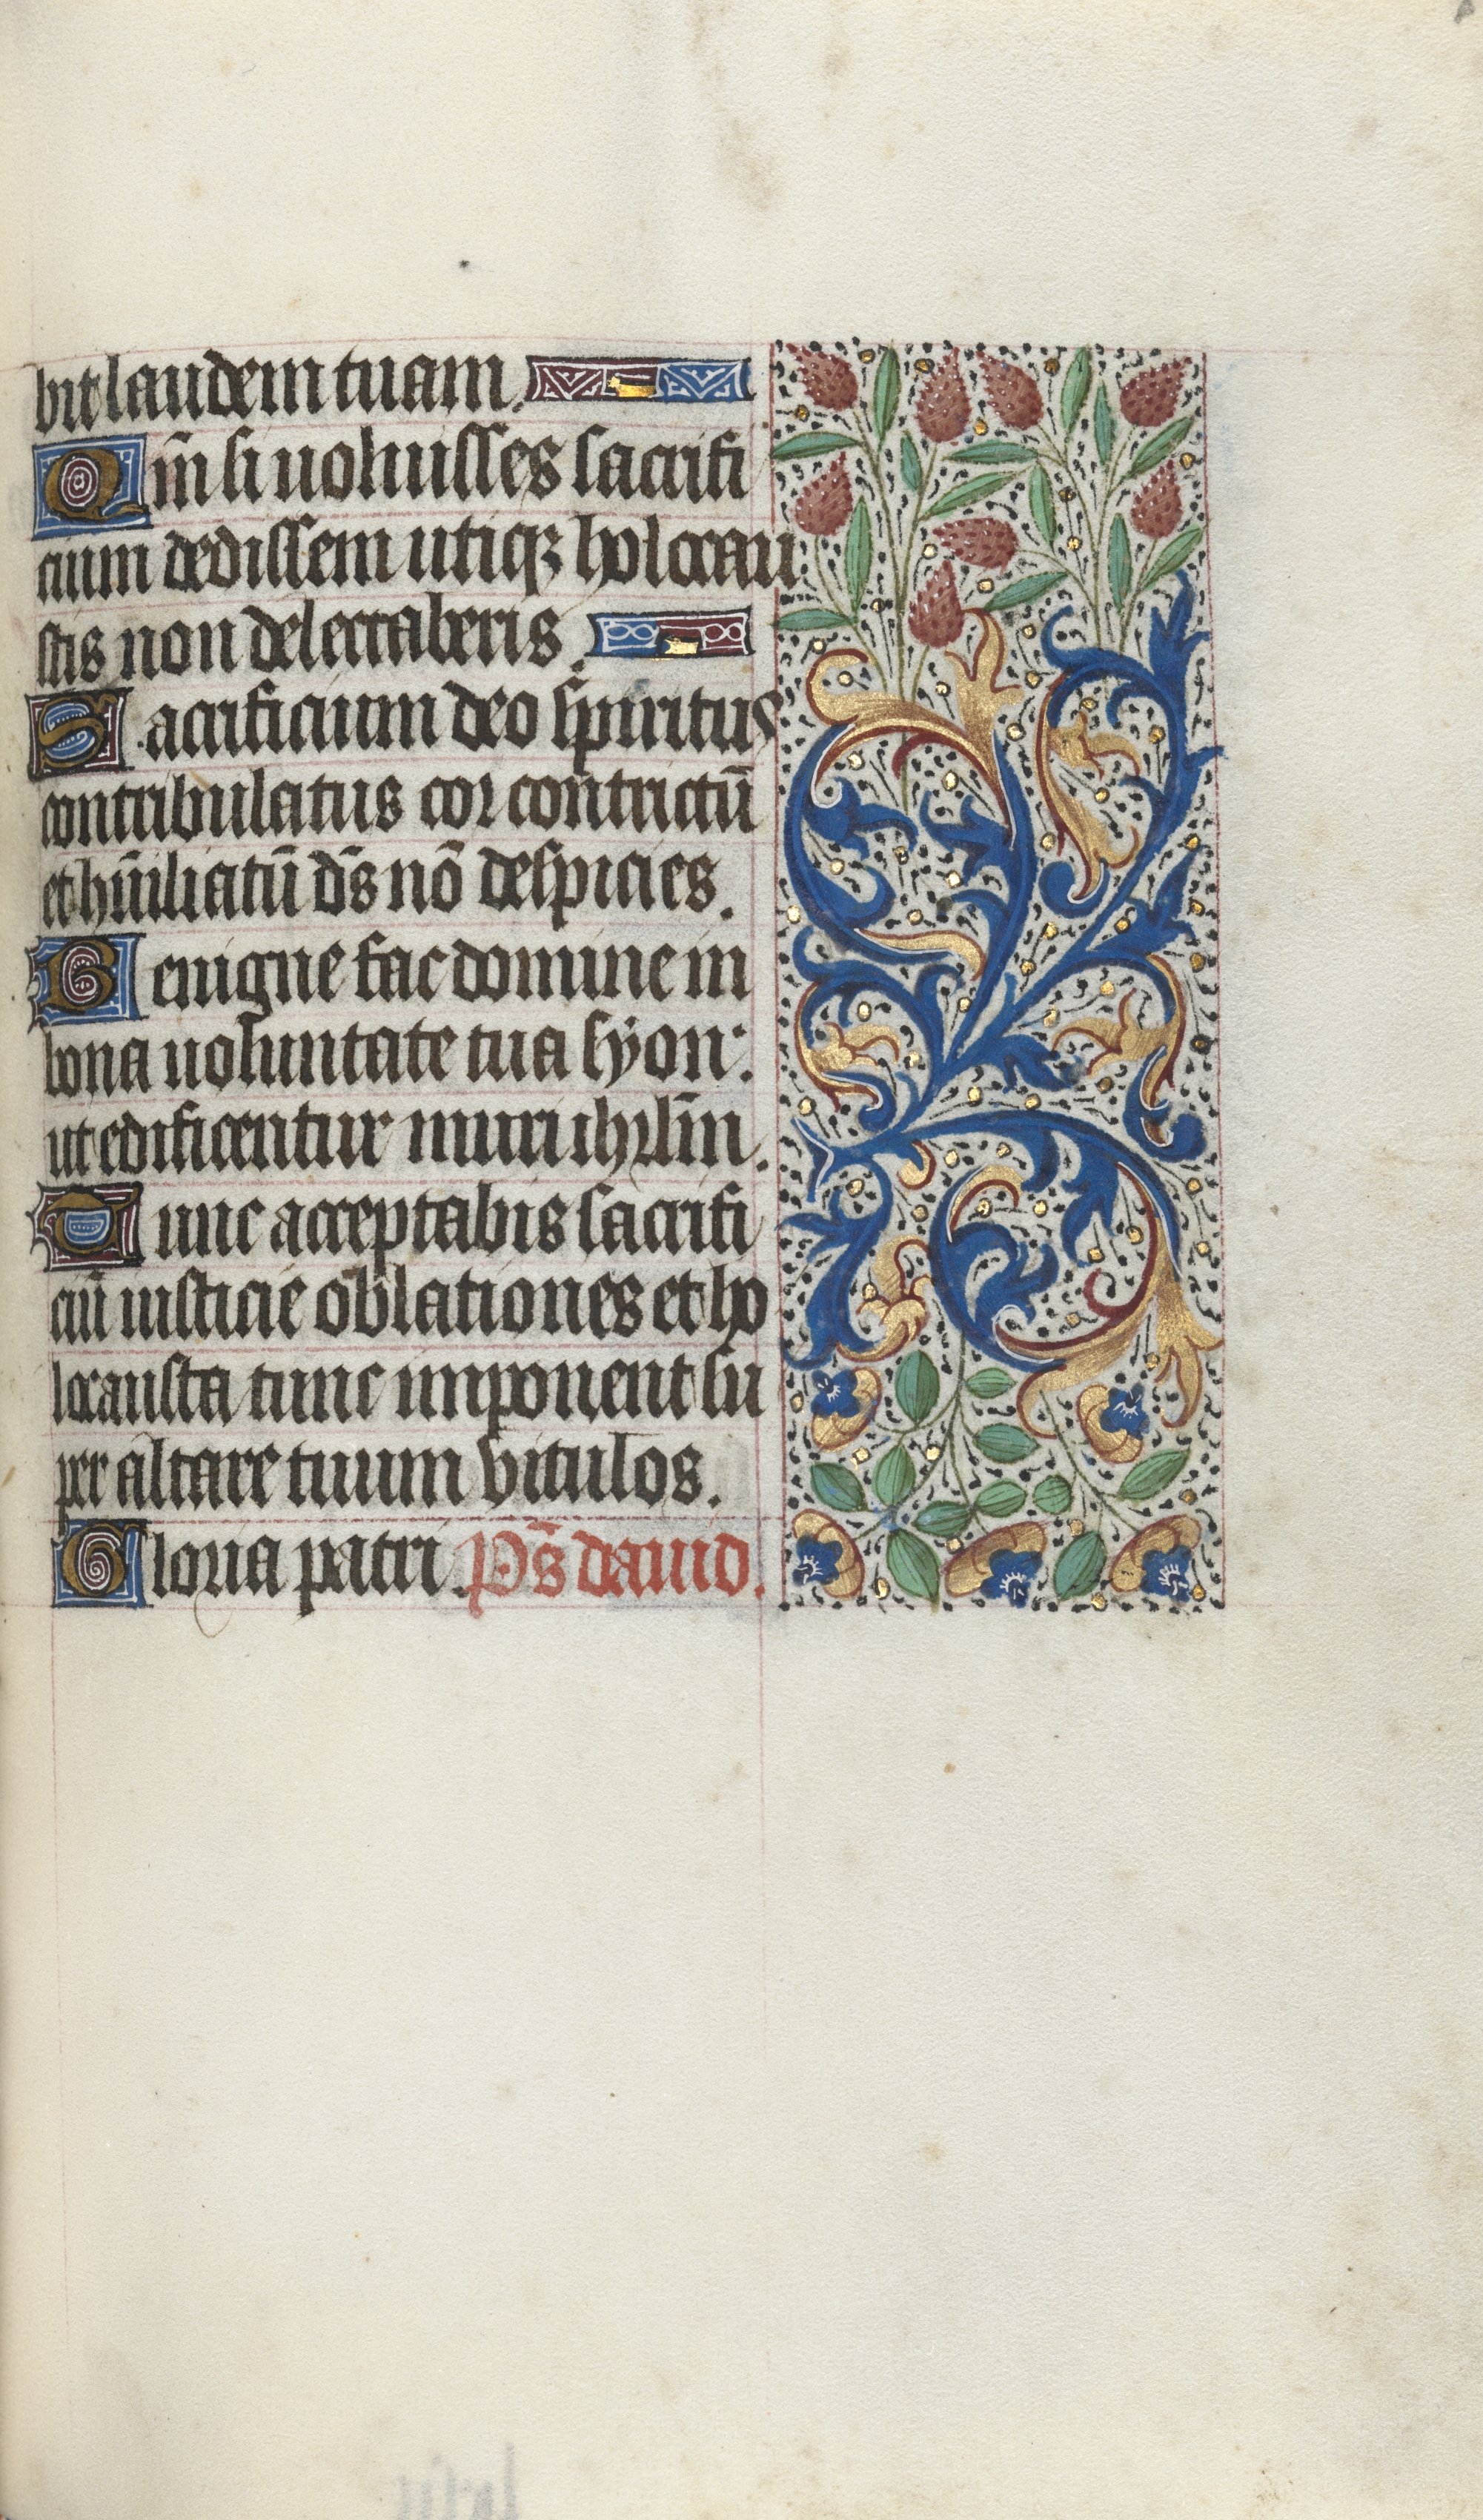 bit laudem tuam.
Qm̄ si uoluisses sacrifi
cium dedissem utiqꝫ holocau
stis non delectaberis.
Sacrificium deo spiritus
contribulatus cor contrictū
et hūiliatū d̄s nō despicies.
Benigne fac domine in
bona uoluntate tua syon:
ut edificentur muri ihrl̄m.
Tunc acceptabis sacrifi
ciū iusticie oblationes et ho
locausta tunc imponent su
per altare tuum vitulos.
Gloria patri. Ps̄ dauid.